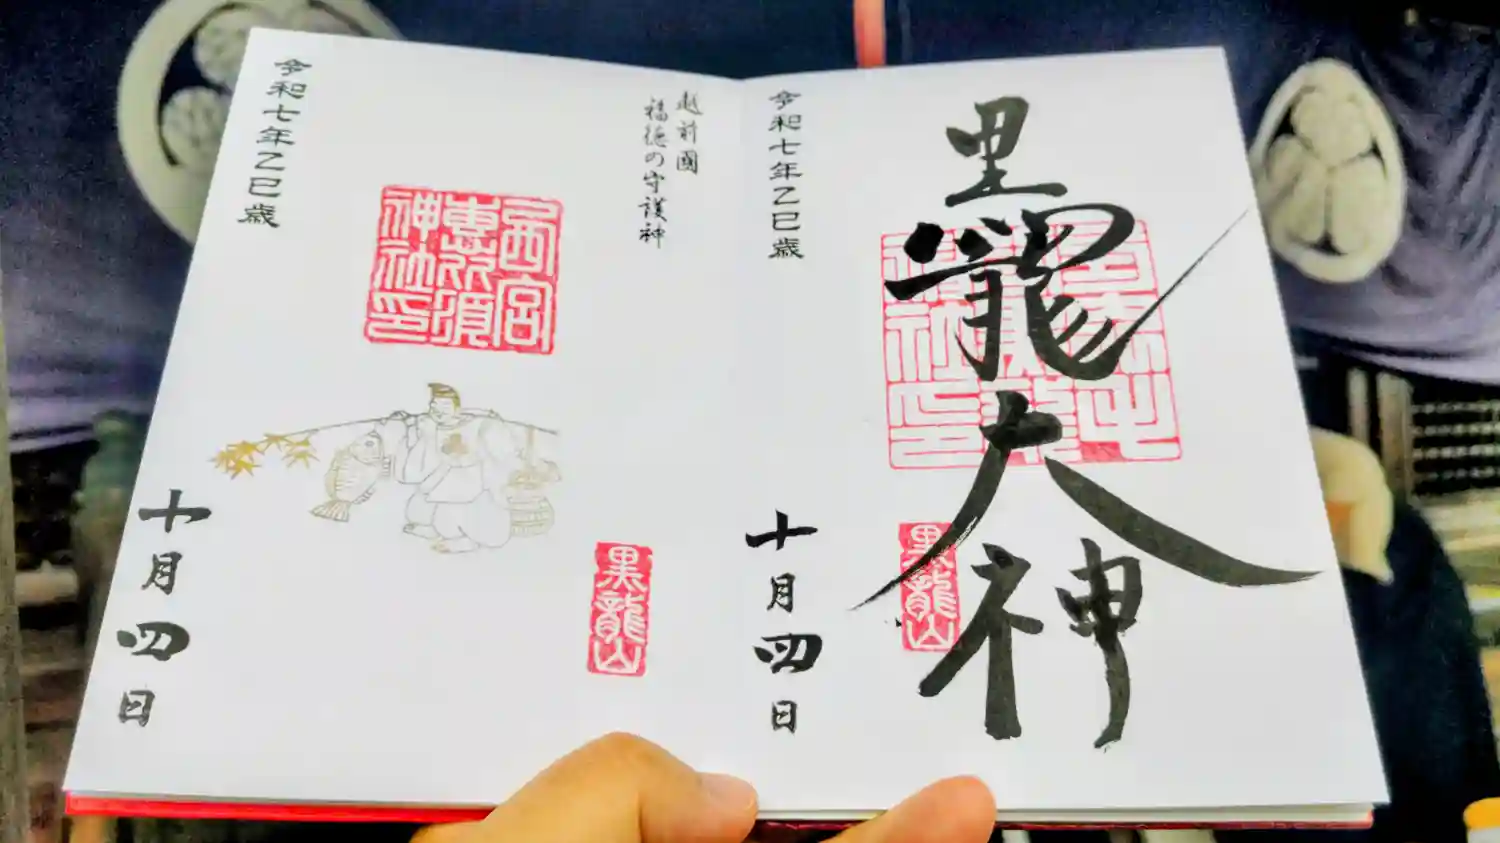 黒龍大神
令和七年乙巳歳
十月四日
黒龍山
越前國
福徳の守護神
西宮
恵比須
神社印
黒龍山
令和七年乙巳歳
十月四日